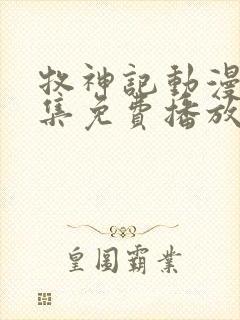 牧神記動漫
集免費播放
皇圖霸業